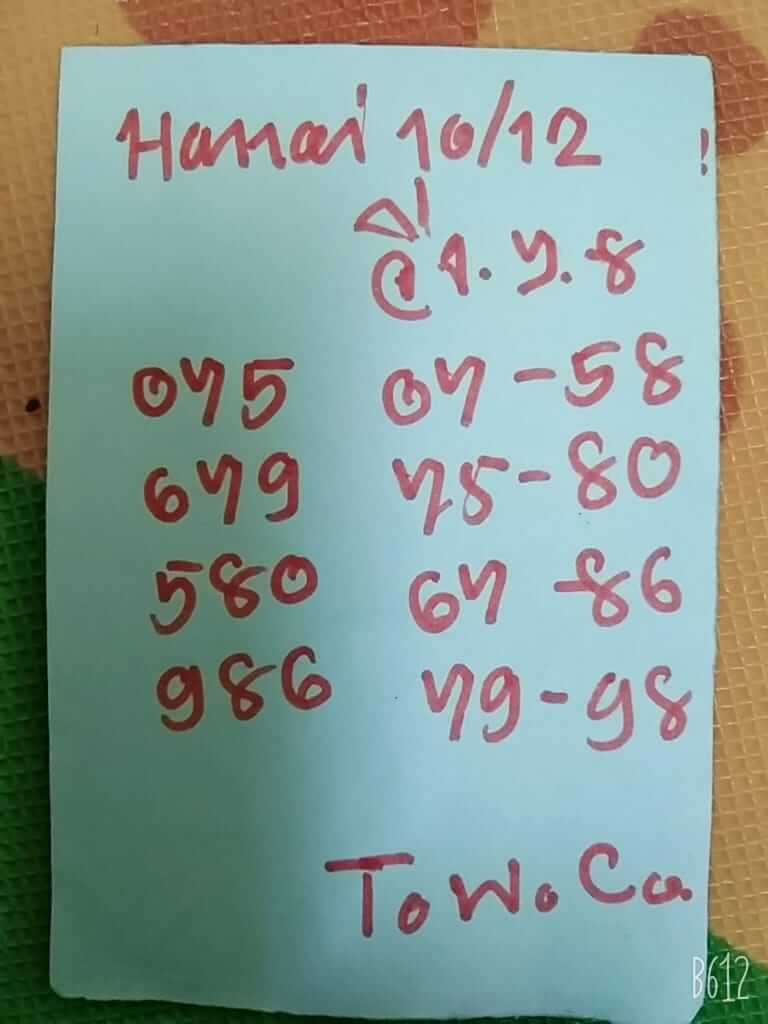 Hanai 10/12 !
075 07-58
679 75-80
580 67-86
986 79-98
ToWoCa.
B612